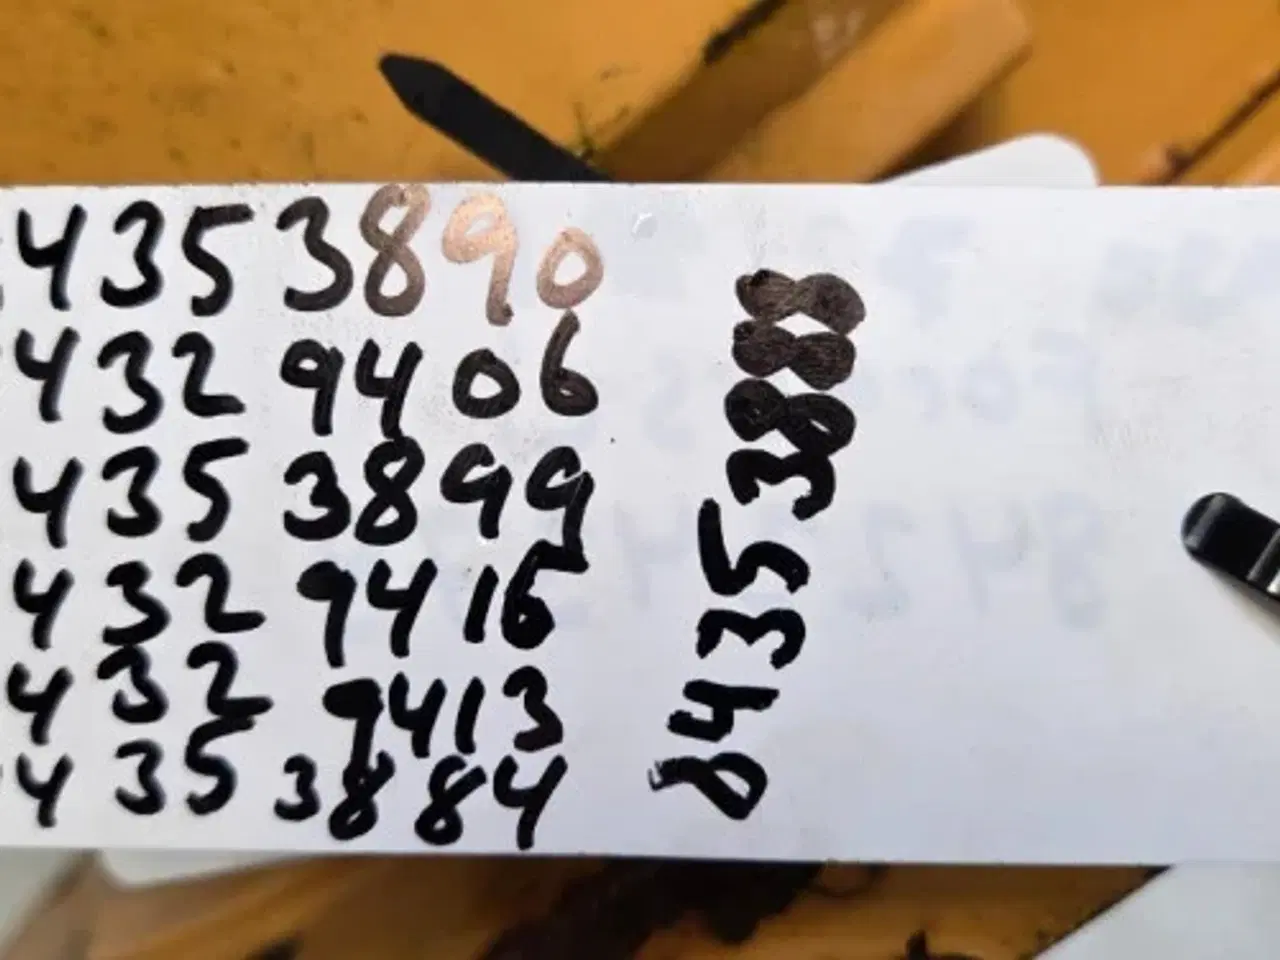 435 3890
432 9406
435 3899
432 9416
432 9413
435 3884
8435 3888